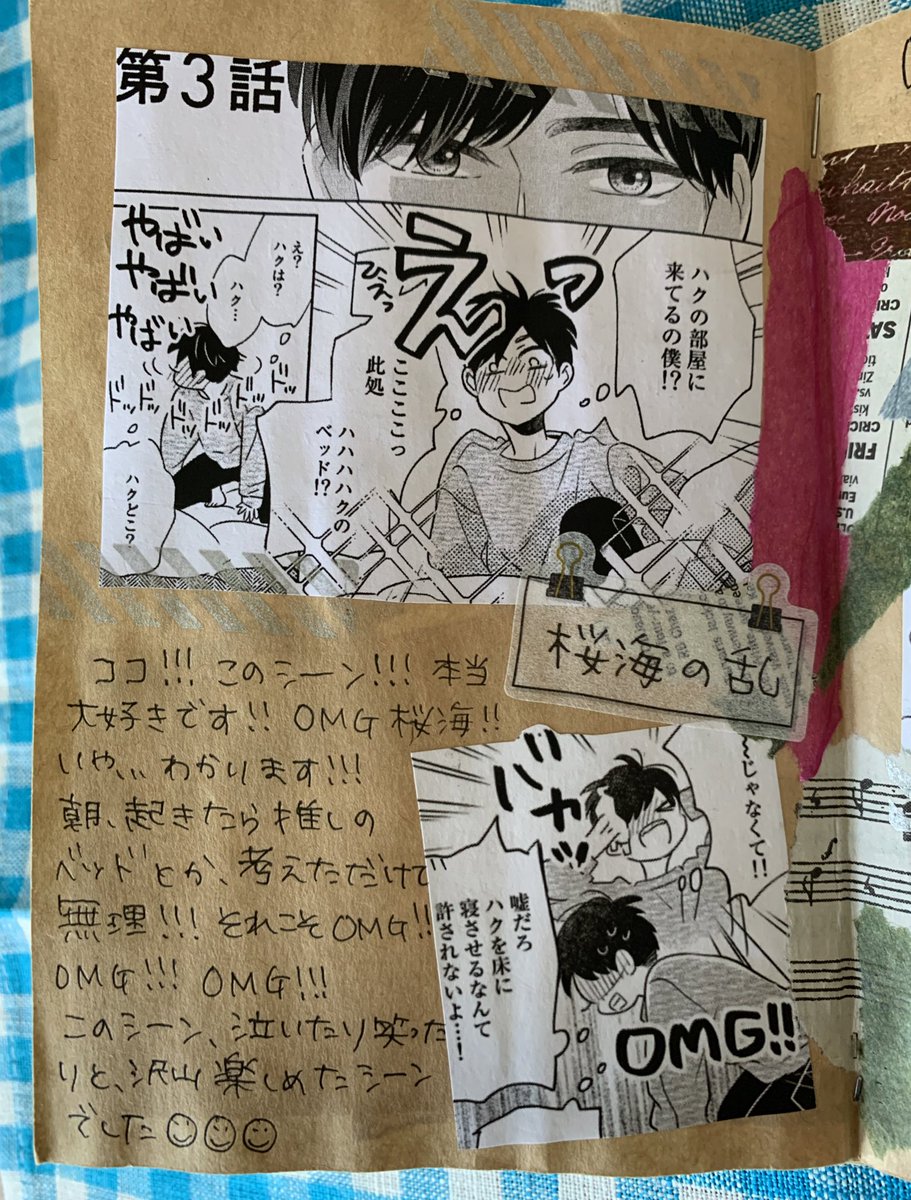 第3話
ハクの部屋に
来てるの僕!?
えっっ
ひえっ
ここここっ
此処
ハハハハクの
ベッド!?
え?
ハクは?
ハク…
やばい
やばい
やばい
ドッ
ドッ
ドッ
ドッ
ドッ
ハクどこ?
桜海の乱
ココ!!! このシーン!!! 本当
大好きです!! OMG 桜海!!
いや、、、わかります!!!
朝、起きたら推しの
ベッドとか、考えただけで
無理!!! それこそOMG!!
OMG!!! OMG!!!
このシーン、泣いたり笑った
りと、沢山楽しめたシーン
でした☺☺☺
〜じゃなくて!!
ガバッ
嘘だろ
ハクを床に
寝させるなんて
許されないよ…!
OMG!!
CRI
SA
Zin
vs.
kis
CRIC
FRI
via
Eur
U.S